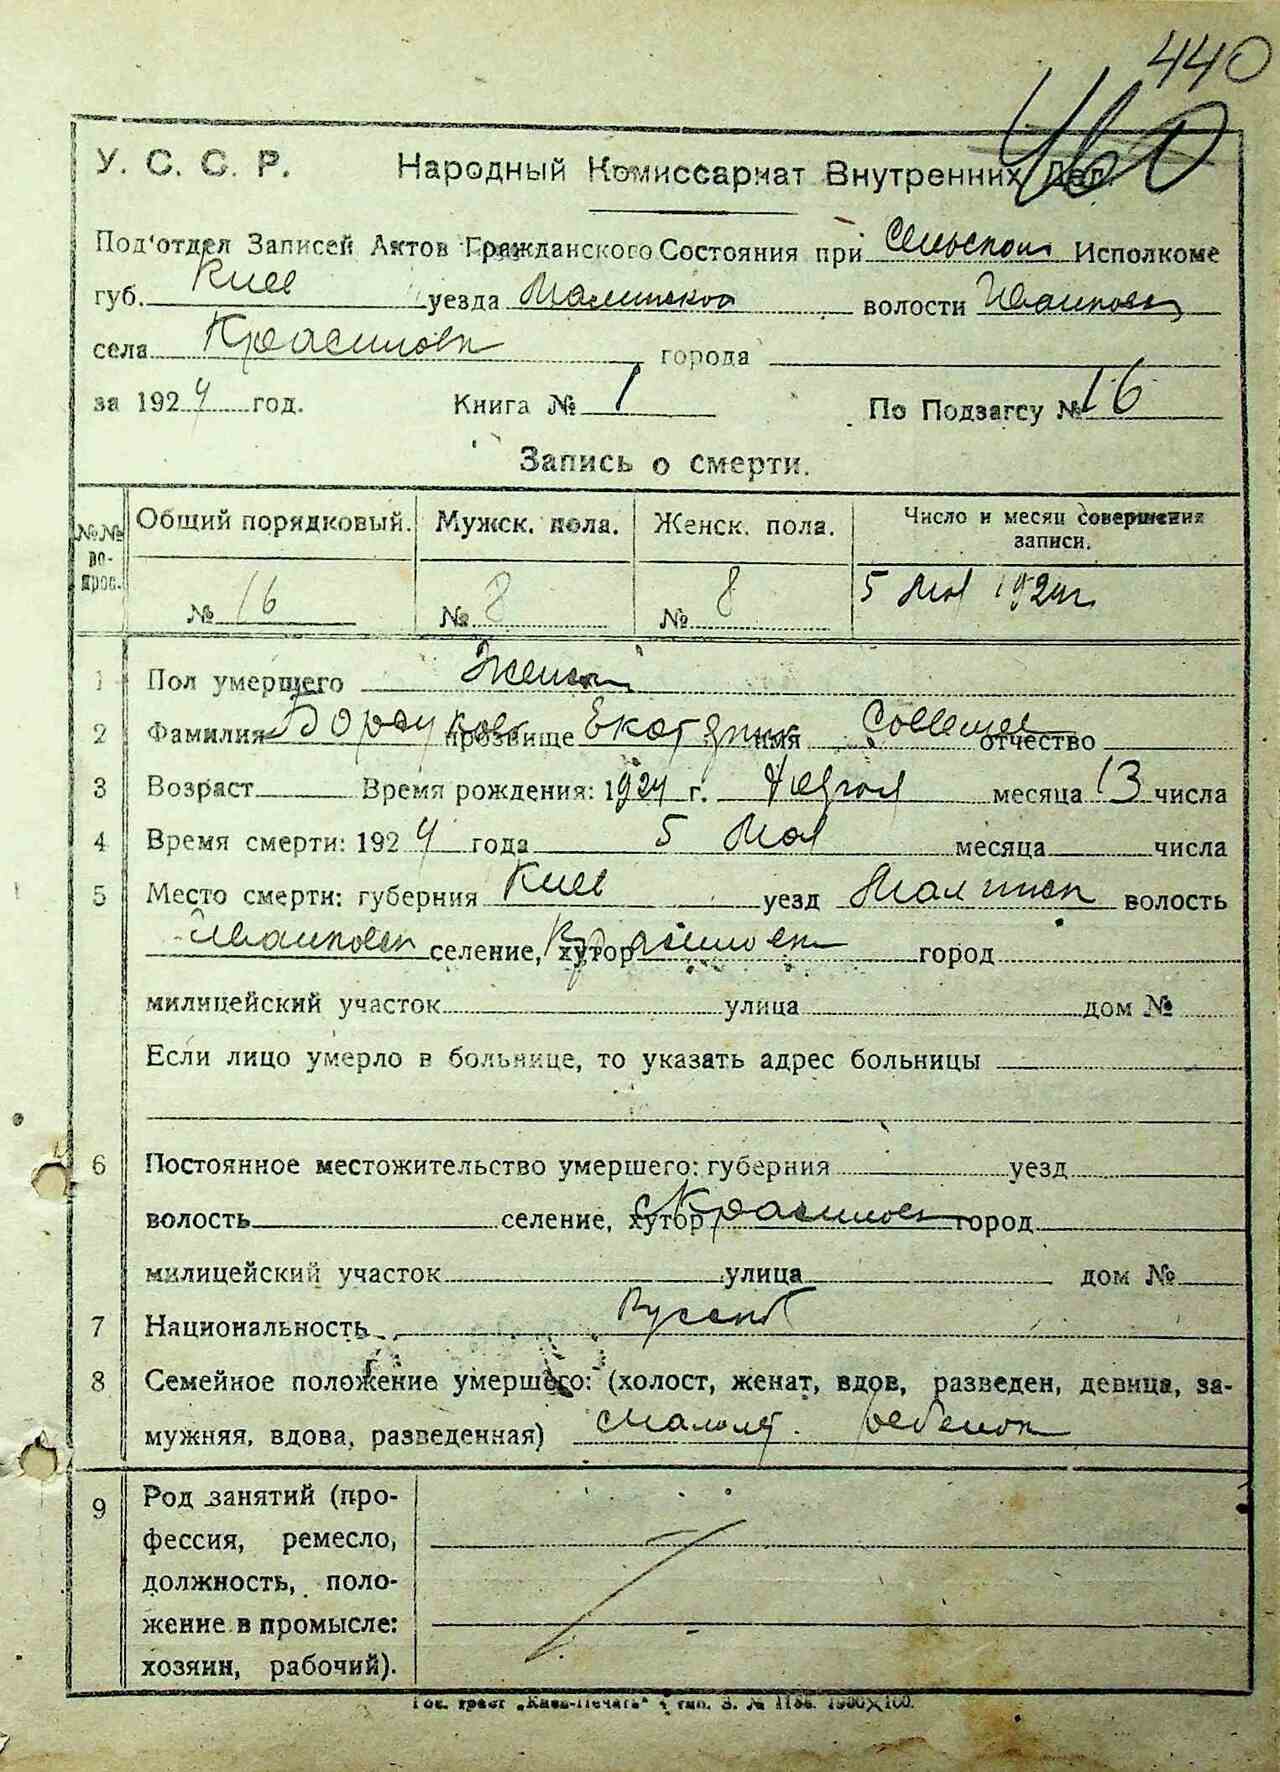 440
460
У. С. С. Р. Народный Комиссариат Внутренних Дел.
Под'отдел Записей Актов Гражданского Состояния при Сельском Исполкоме
губ. Киев уезда Малинской волости
села города
за 1924 год. Книга № 1 По Подзагсу № 16
Запись о смерти.
№№ во- прос. Общий порядковый. Мужск. пола. Женск. пола. Число и месяц совершения записи.
№ 16 № 8 № 8 5 Мая 1924 г
1 Пол умершего Женск
2 Фамилия прозвище имя отчество
3 Возраст Время рождения: 1924 г. месяца 13 числа
4 Время смерти: 1924 года 5 Мая месяца числа
5 Место смерти: губерния Киев уезд Малинск волость
селение, хутор город
милицейский участок улица дом №
Если лицо умерло в больнице, то указать адрес больницы
6 Постоянное местожительство умершего: губерния уезд
волость селение, хутор город
милицейский участок улица дом №
7 Национальность
8 Семейное положение умершего: (холост, женат, вдов, разведен, девица, за-
мужняя, вдова, разведенная) Малолет. ребенок
9 Род занятий (про-
фессия, ремесло,
должность, поло-
жение в промысле:
хозяин, рабочий).